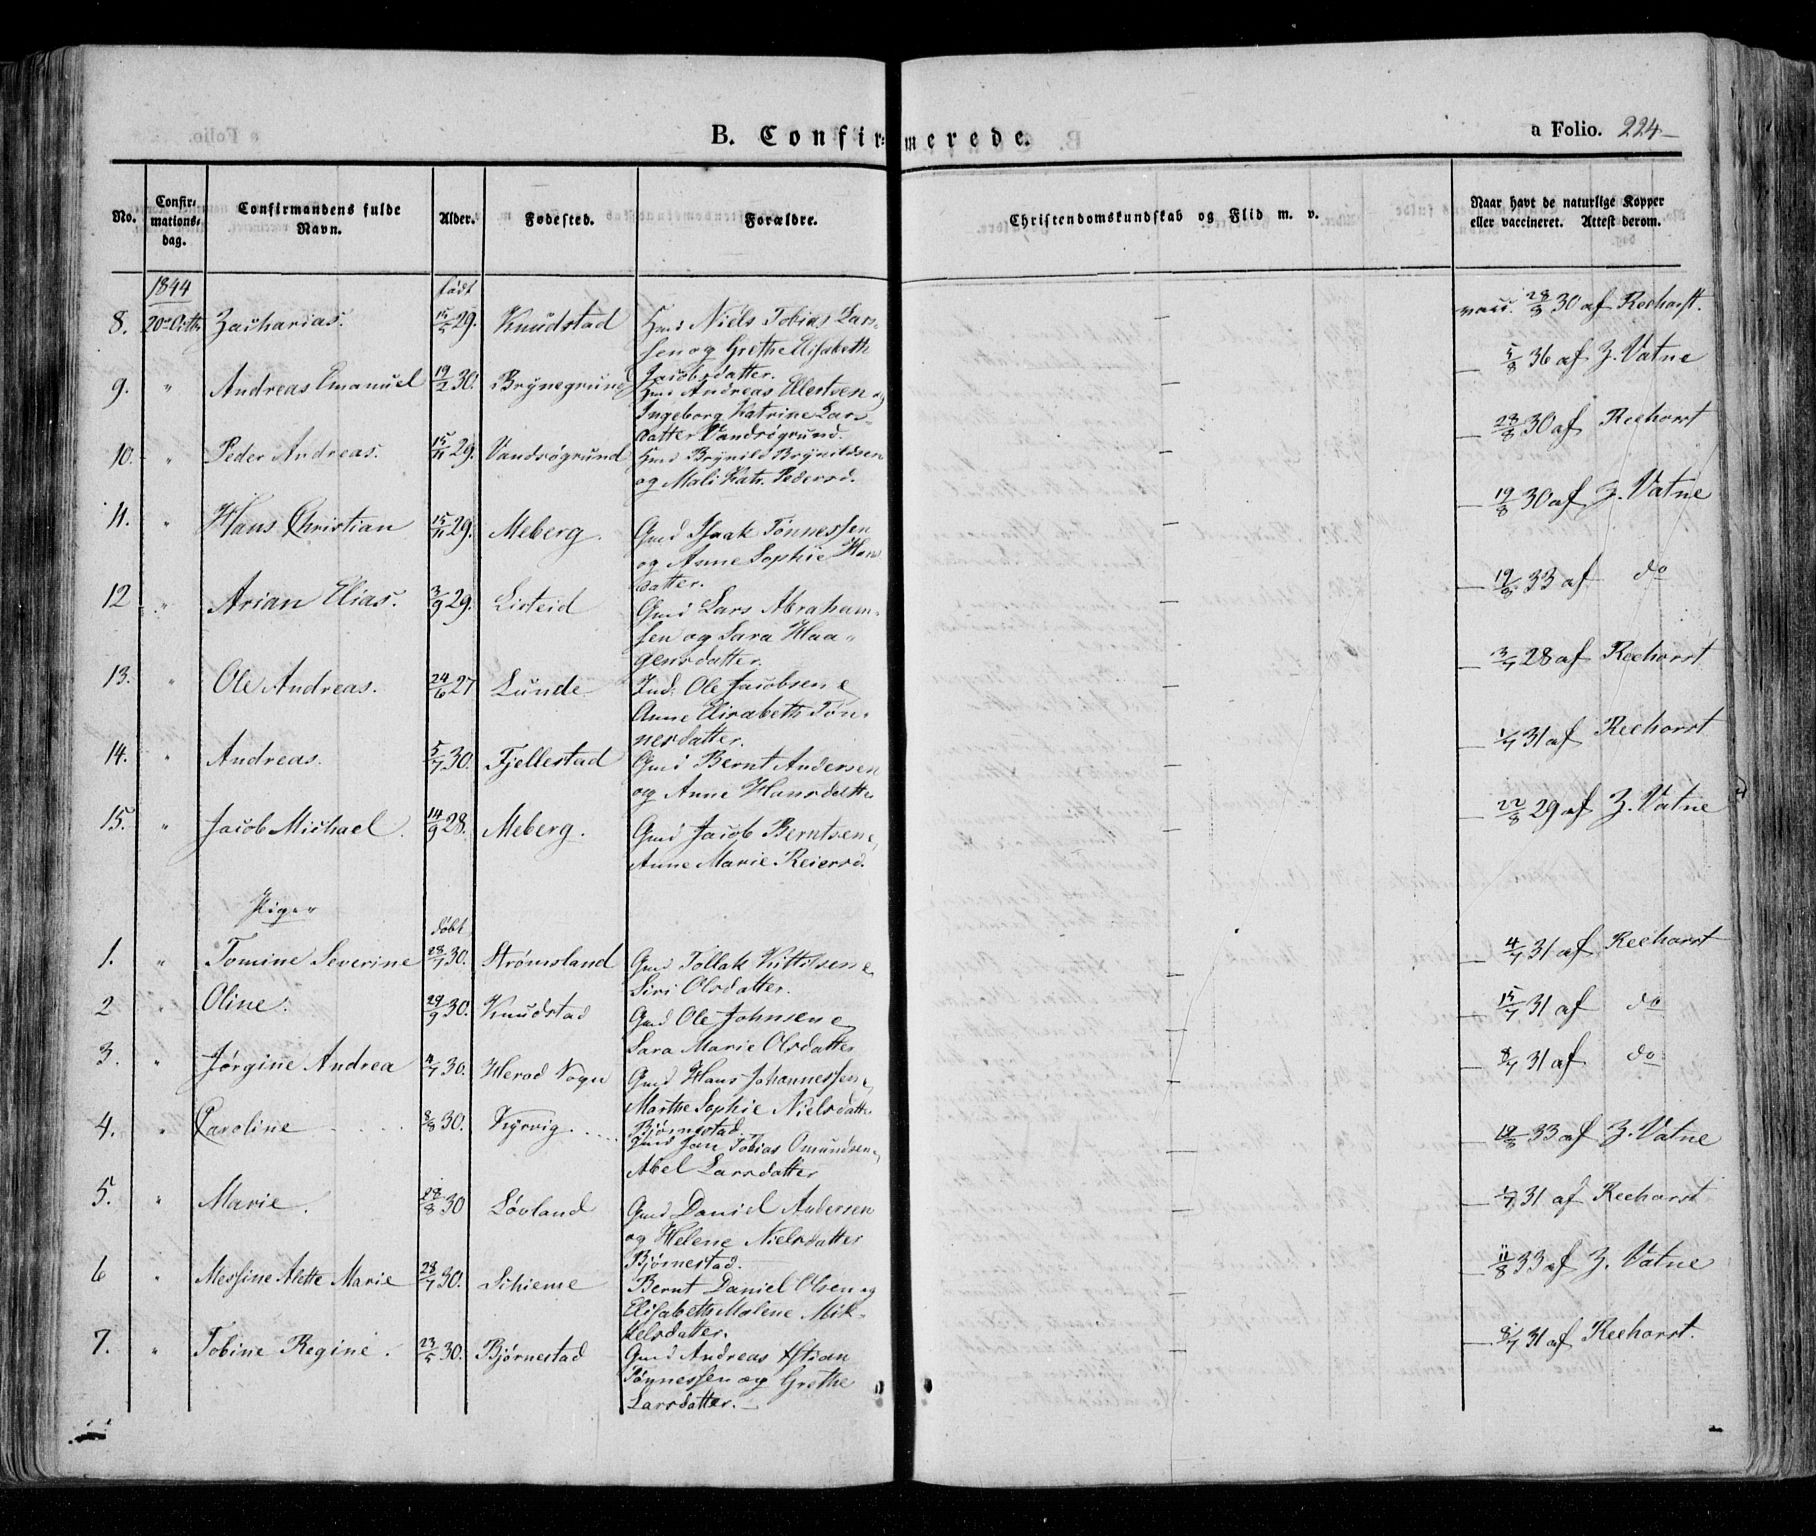 B. Confirmerede.
a Folio. 224
No. Confirmationsdag. Confirmandens fulde Navn. Alder. Fødested. Forældre. Christendomskundskab og Flid m. v. Naar havt de naturlige Kopper eller vaccineret. Attest derom.
1844 født
8. 20de Octbr Zacharias. 15/5 29. Knudstad Niels Tobias Lars- vacc. 28/8 30 af Reehorst.
sen og Grethe Elisabeth
Jacobsdatter.
9. " Andreas Emanuel 19/2 30. Brynegrund Andreas Ellertsen og — 5/8 36 af Z. Vatne
Ingeborg Katrine Lars-
datter Vandsøgrund.
10. " Peder Andreas. 15/11 29. Vandsøgrund Brynild Brynildsen — 28/8 30 af Reehorst
og Mali Katr. Pedersd.
11. " Hans Christian 15/11 29. Meberg. Gmd Isaak Tønnessen — 19/8 30 af Z. Vatne
og Anne Sophie Hans
datter.
12 " Arian Elias. 3/9 29. Listeid Gmd Lars Abraham- — 19/8 33 af do
sen og Sara Haa-
gensdatter.
13. " Ole Andreas. 24/6 27 Lunde Ole Jacobsen e — 3/7 28 af Reehorst
Anne Elisabeth Tøn-
nesdatter.
14. " Andreas. 5/7 30. Fjellestad Gmd Bernt Andersen — 1/7 31 af Reehorst
og Anne Hansdatter
15. " Jacob Michael. 14/9 28. Meberg. Gmd Jacob Berntsen e — 22/8 29 af Z. Vatne
Anne Marie Reiersd.
Piger
døbt
1. " Tomine Severine 28/7 30. Strømsland Gmd Tollak Kittilsen e — 4/7 31 af Reehorst
Siri Olsdatter.
2 " Oline. 29/9 30. Knudstad Gmd Ole Johnsen e — 15/7 31 af do
Sara Marie Olsdatter
3. " Jørgine Andrea 4/7 30. Herad Sogn Gmd Hans Johannessen e — 8/7 31 af do
Marthe Sophie Nielsdatter
Bjørnestad.
4. " Caroline 8/8 30. Kyrvig Gmd Jan Tobias Omundsen e — 19/8 33 af Z. Vatne
Abel Larsdatter
5. " Marie. 28/8 30 Løvland Gmd Daniel Andersen — 1/7 31 af Reehorst
og Helene Nielsdatter
Bjørnestad.
6 " Messine Alette Marie 28/7 30. Schieme Bernt Daniel Olsen og — 11/8 33 af Z. Vatne
Elisabeth Malene Mik-
kelsdatter.
7. " Tobine Regine. 23/5 30. Bjørnestad Gmd Andreas Xstian — 8/7 31 af Reehorst.
Tønnessen og Grethe
Larsdatter.